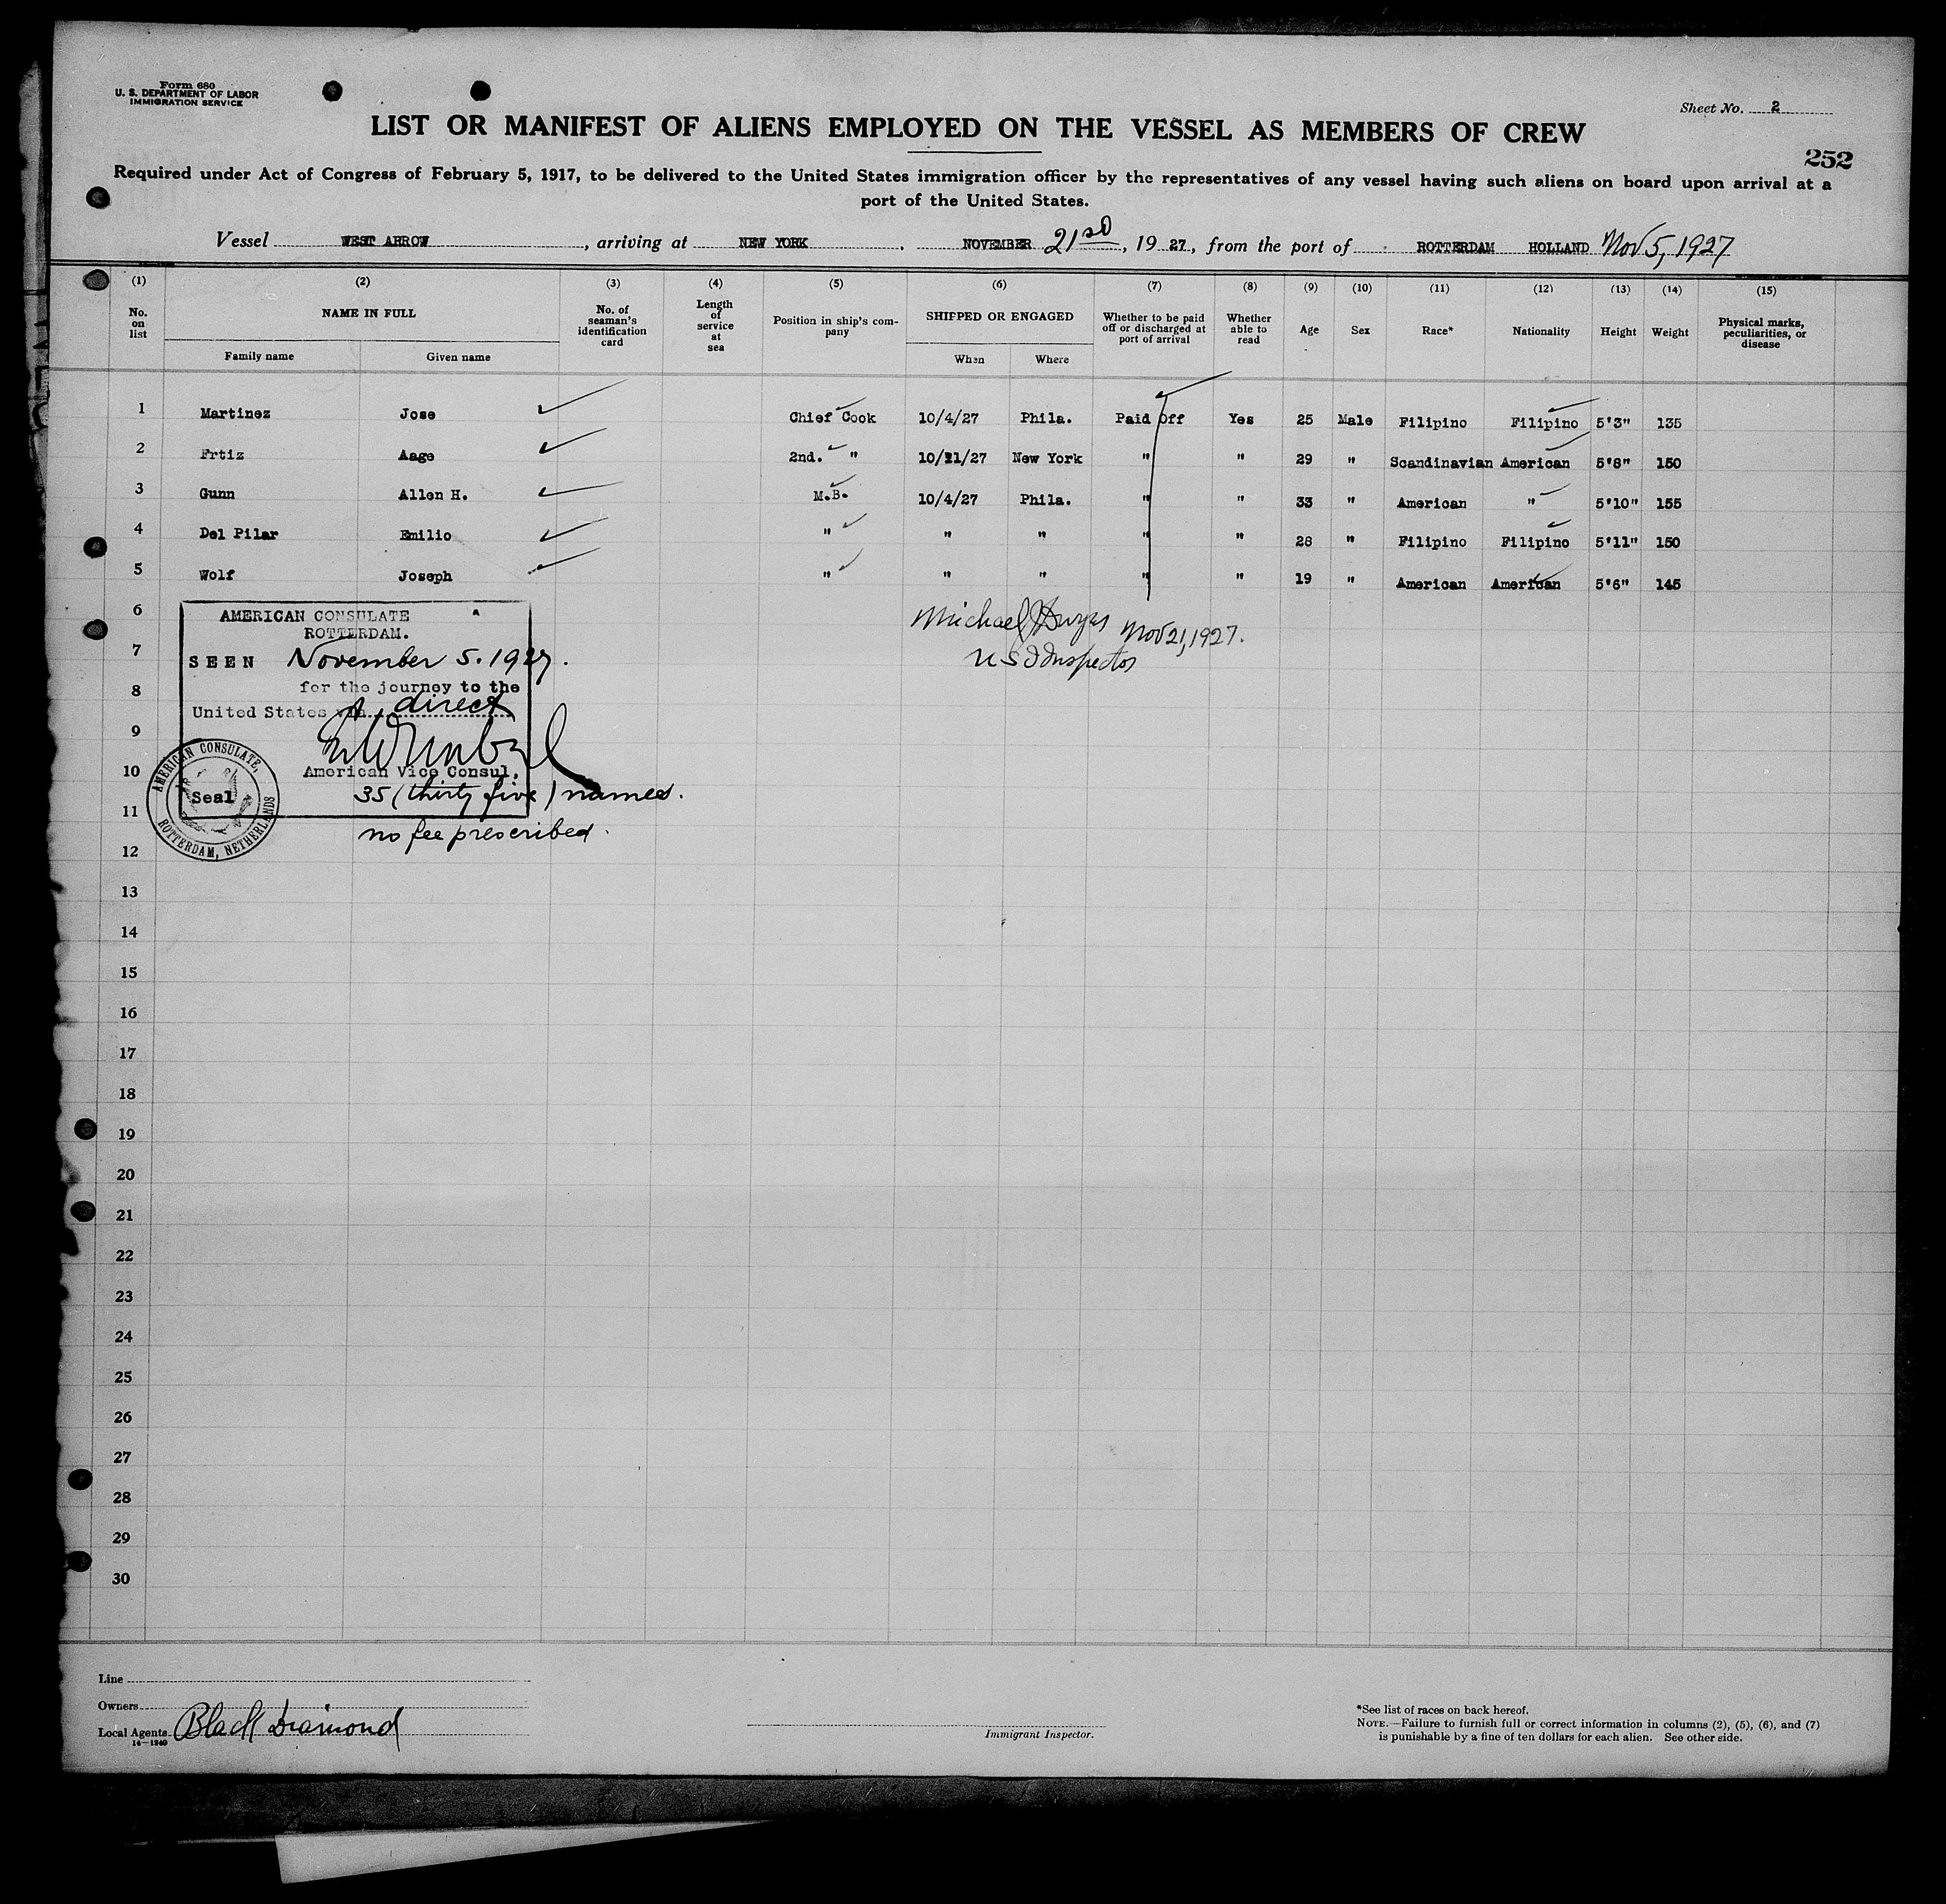 Form 680
U. S. DEPARTMENT OF LABOR
IMMIGRATION SERVICE
Sheet No. 2
LIST OR MANIFEST OF ALIENS EMPLOYED ON THE VESSEL AS MEMBERS OF CREW
252
Required under Act of Congress of February 5, 1917, to be delivered to the United States immigration officer by the representatives of any vessel having such aliens on board upon arrival at a
port of the United States.
Vessel WEST ARROW, arriving at NEW YORK. NOVEMBER 21st, 1927, from the port of ROTTERDAM HOLLAND Nov 5, 1927
(1) (2) (3) (4) (5) (6) (7) (8) (9) (10) (11) (12) (13) (14) (15)
No. on list NAME IN FULL No. of seaman's identification card Length of service at sea Position in ship's company SHIPPED OR ENGAGED Whether to be paid off or discharged at port of arrival Whether able to read Age Sex Race* Nationality Height Weight Physical marks, peculiarities, or disease
Family name Given name When Where
1 Martinez Jose Chief Cook 10/4/27 Phila. Paid Off Yes 25 Male Filipino Filipino 5'3" 135
2 Frtiz Aage 2nd. " 10/21/27 New York " " 29 " Scandinavian American 5'8" 150
3 Gunn Allen H. M.B. 10/4/27 Phila. " " 33 " American " 5'10" 155
4 Del Pilar Emilio " " " " " 28 " Filipino Filipino 5'11" 150
5 Wolf Joseph " " " " " 19 " American American 5'6" 145
6
7
8
9
10
11
12
13
14
15
16
17
18
19
20
21
22
23
24
25
26
27
28
29
30
AMERICAN CONSULATE
ROTTERDAM.
SEEN November 5. 1927.
for the journey to the
United States via direct
American Vice Consul,
35 (thirty five) names.
no fee prescribed.
Seal
AMERICAN CONSULATE,
ROTTERDAM, NETHERLANDS
Michael Nov 21, 1927.
U S I Inspector
Line
Owners
Local Agents Black Diamond
14—1240
Immigrant Inspector.
*See list of races on back hereof.
NOTE.—Failure to furnish full or correct information in columns (2), (5), (6), and (7)
is punishable by a fine of ten dollars for each alien. See other side.